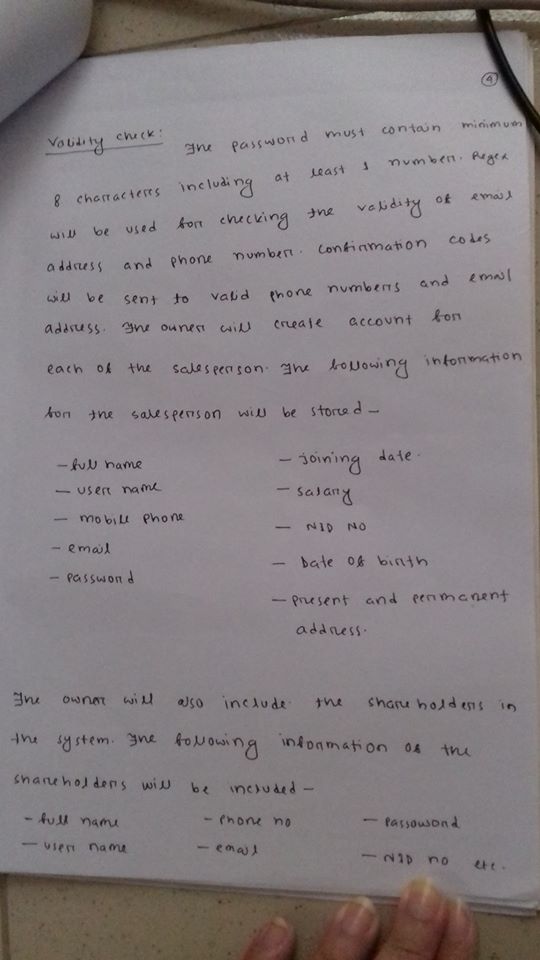 4
Validity check: The password must contain minimum
8 characters including at least 1 number. Regex
will be used for checking the validity of email
address and phone number. confirmation codes
will be sent to valid phone numbers and email
address. The owner will create account for
each of the salesperson. The following information
for the salesperson will be stored -
- full name
- user name
- mobile phone
- email
- password
- joining date.
- salary
- NID NO
- Date of birth
- present and permanent
address.
The owner will also include the shareholders in
the system. The following information of the
shareholders will be included -
- full name - phone no - passoword
- user name - email - NID no etc.